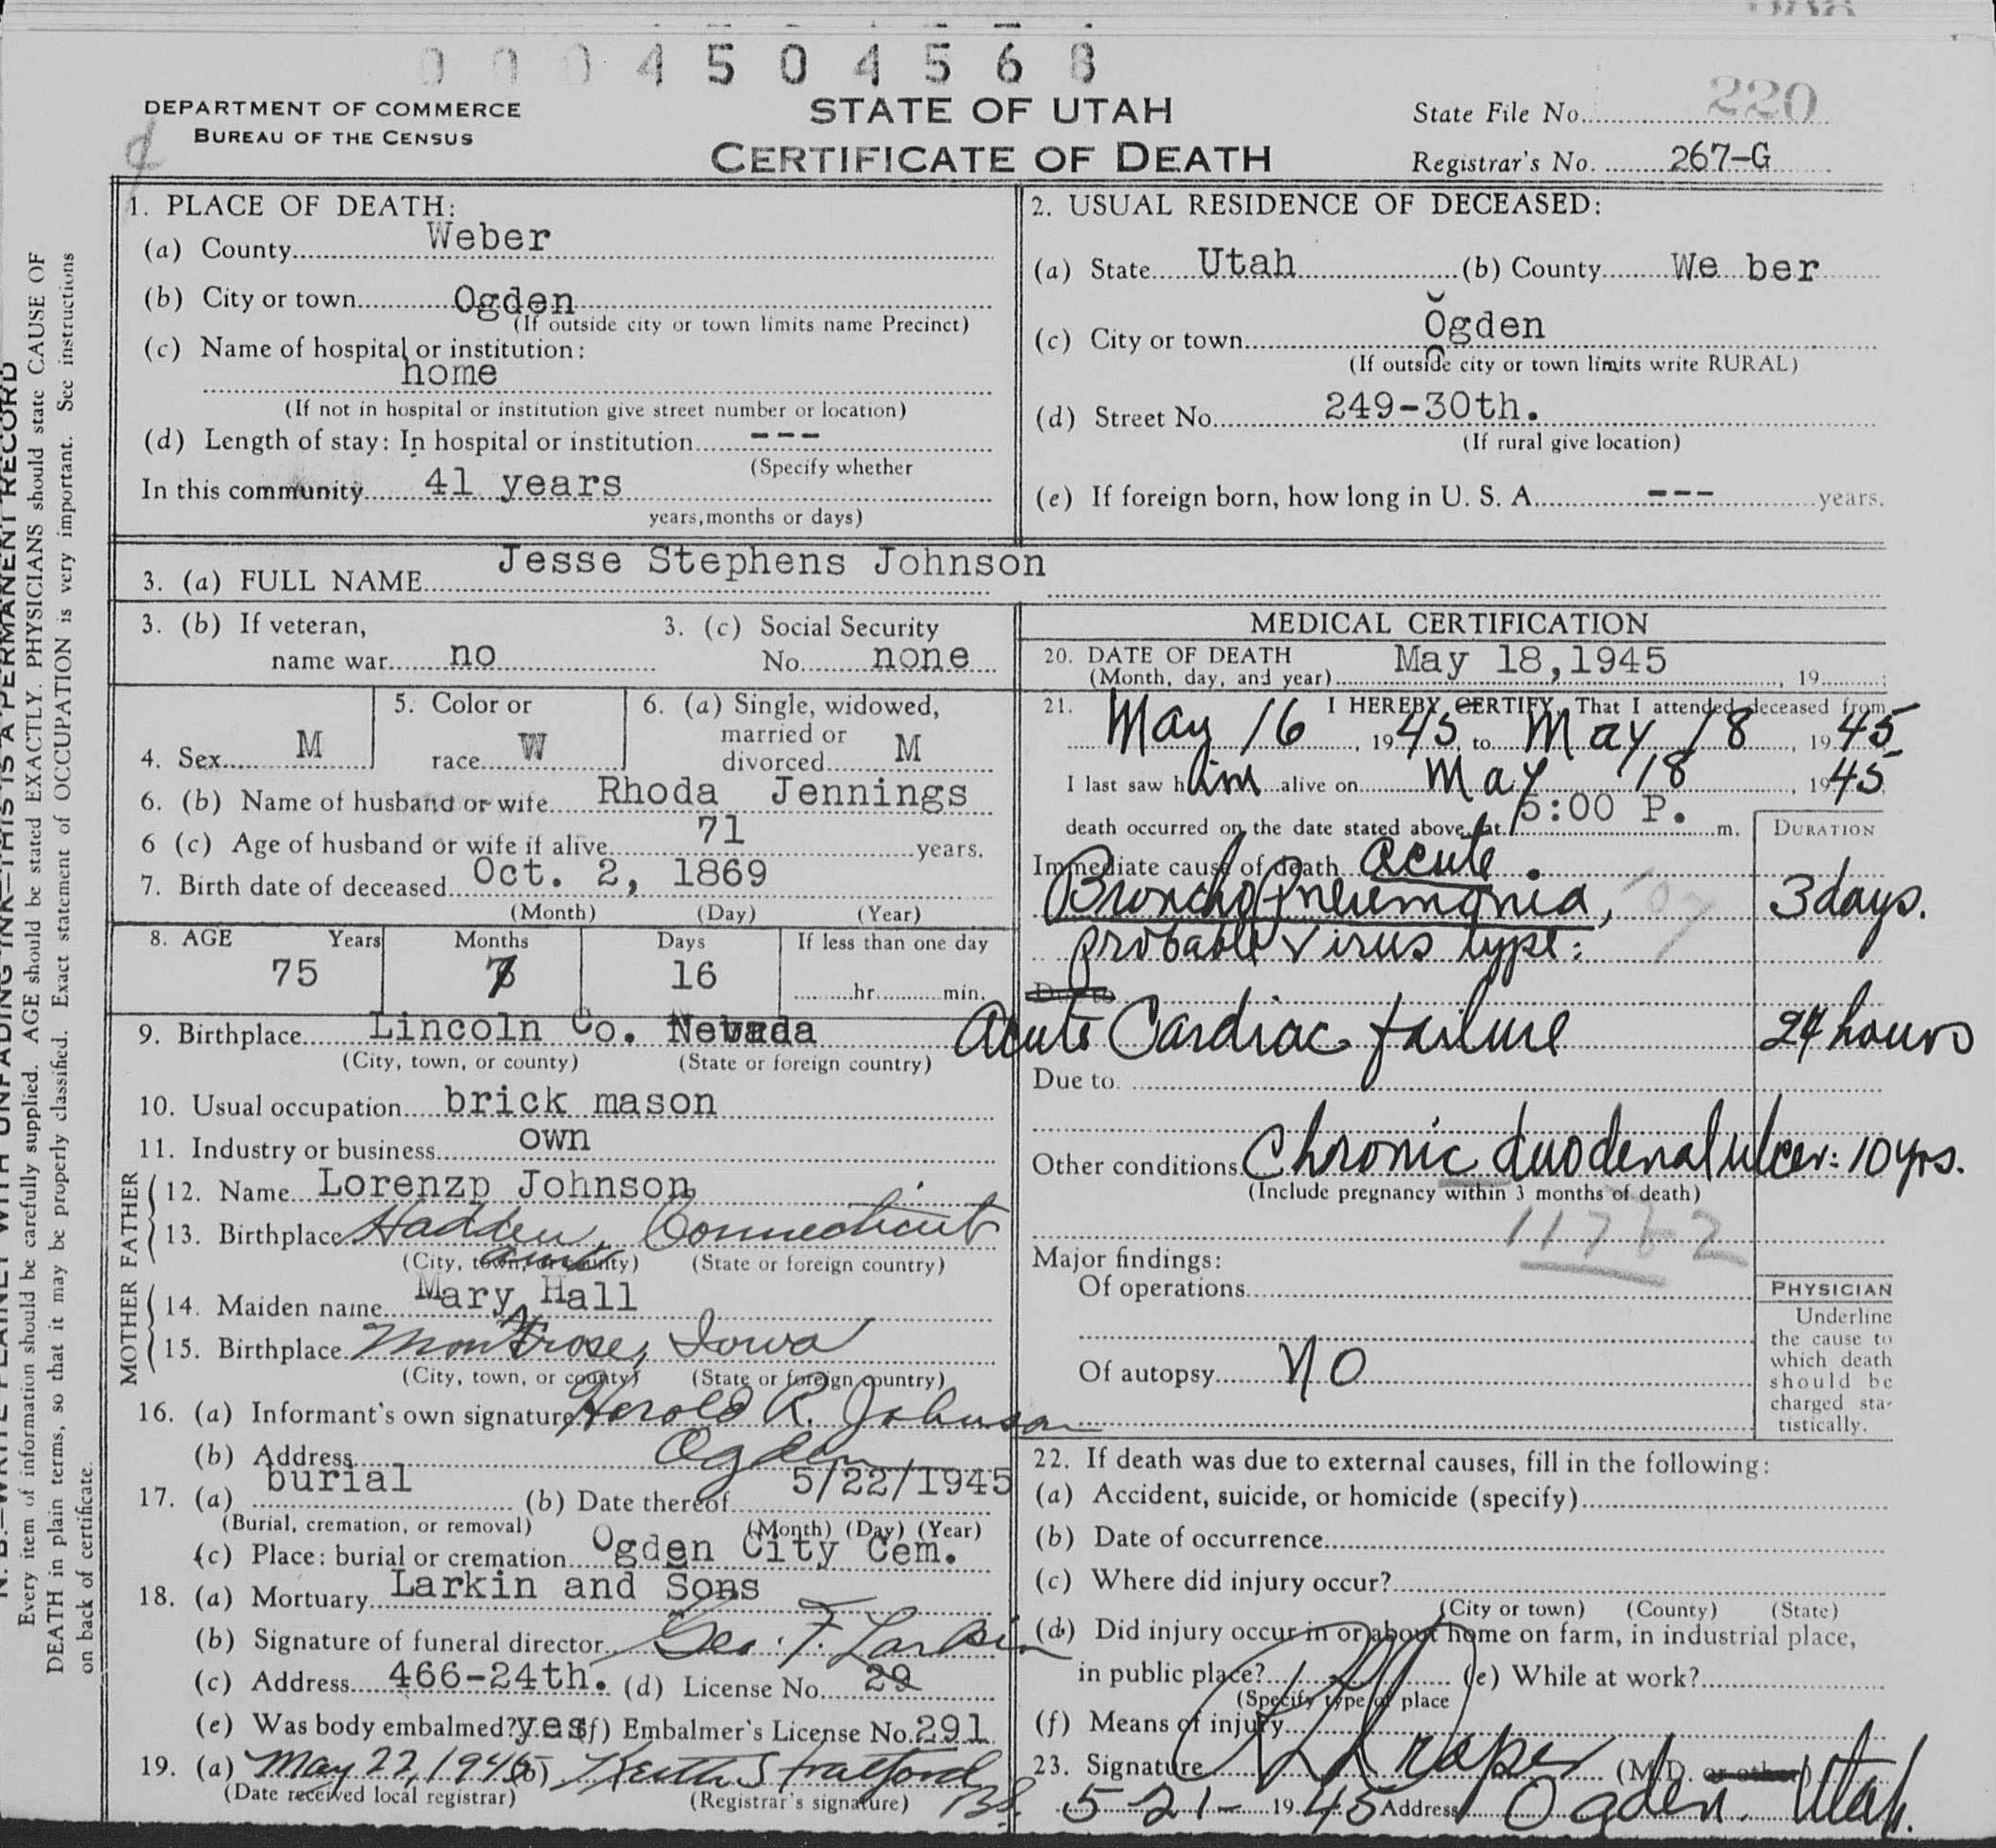 0 0 0 4 5 0 4 5 6 8
DEPARTMENT OF COMMERCE
BUREAU OF THE CENSUS
STATE OF UTAH
CERTIFICATE OF DEATH
State File No. 220
Registrar's No. 267-G
N. B.—WRITE PLAINLY WITH UNFADING INK—THIS IS A PERMANENT RECORD
Every item of information should be carefully supplied. AGE should be stated EXACTLY. PHYSICIANS should state CAUSE OF
DEATH in plain terms, so that it may be properly classified. Exact statement of OCCUPATION is very important. See instructions
on back of certificate.
1. PLACE OF DEATH:
(a) County Weber
(b) City or town Ogden
(If outside city or town limits name Precinct)
(c) Name of hospital or institution:
home
(If not in hospital or institution give street number or location)
(d) Length of stay: In hospital or institution ---
(Specify whether
In this community 41 years
years, months or days)
2. USUAL RESIDENCE OF DECEASED:
(a) State Utah (b) County We ber
(c) City or town Ogden
(If outside city or town limits write RURAL)
(d) Street No. 249-30th.
(If rural give location)
(e) If foreign born, how long in U. S. A. --- years.
3. (a) FULL NAME Jesse Stephens Johnson
3. (b) If veteran, 3. (c) Social Security
name war no No. none
5. Color or 6. (a) Single, widowed,
married or
4. Sex M race W divorced M
6. (b) Name of husband or wife Rhoda Jennings
6 (c) Age of husband or wife if alive 71 years.
7. Birth date of deceased Oct. 2, 1869
(Month) (Day) (Year)
8. AGE Years Months Days If less than one day
75 7 16 hr. min.
9. Birthplace Lincoln Co. Nevada
(City, town, or county) (State or foreign country)
10. Usual occupation brick mason
11. Industry or business own
FATHER
12. Name Lorenzp Johnson
13. Birthplace Hadden, Connecticut
(City, town, or county) (State or foreign country)
MOTHER
14. Maiden name Mary Ann Hall
15. Birthplace Montrose, Iowa
(City, town, or county) (State or foreign country)
16. (a) Informant's own signature Herold R. Johnson
(b) Address Ogden
17. (a) burial (b) Date thereof 5/22/1945
(Burial, cremation, or removal) (Month) (Day) (Year)
(c) Place: burial or cremation Ogden City Cem.
18. (a) Mortuary Larkin and Sons
(b) Signature of funeral director Geo. F. Larkin
(c) Address 466-24th. (d) License No. 29
(e) Was body embalmed? yes (f) Embalmer's License No. 291
19. (a) May 22, 1945 (b) Keith Stratford
(Date received local registrar) (Registrar's signature)
MEDICAL CERTIFICATION
20. DATE OF DEATH May 18, 1945
(Month, day, and year) , 19 ;
21. I HEREBY CERTIFY, That I attended deceased from
May 16, 1945, to May 18, 1945
I last saw him alive on May 18, 1945
death occurred on the date stated above, at 5:00 P. m.
DURATION
Immediate cause of death Acute
Broncho Pneumonia, 107 3 days.
probable virus type:
Due to
Acute Cardiac failure 24 hours
Due to
Other conditions Chronic duodenal ulcer: 10 yrs.
(Include pregnancy within 3 months of death)
Major findings:
Of operations
Of autopsy NO
PHYSICIAN
Underline
the cause to
which death
should be
charged sta-
tistically.
22. If death was due to external causes, fill in the following:
(a) Accident, suicide, or homicide (specify)
(b) Date of occurrence
(c) Where did injury occur?
(City or town) (County) (State)
(d) Did injury occur in or about home on farm, in industrial place,
in public place? (e) While at work?
(Specify type of place
(f) Means of injury
23. Signature Draper (M.D. or other)
5-21- 1945 Address Ogden. Utah.